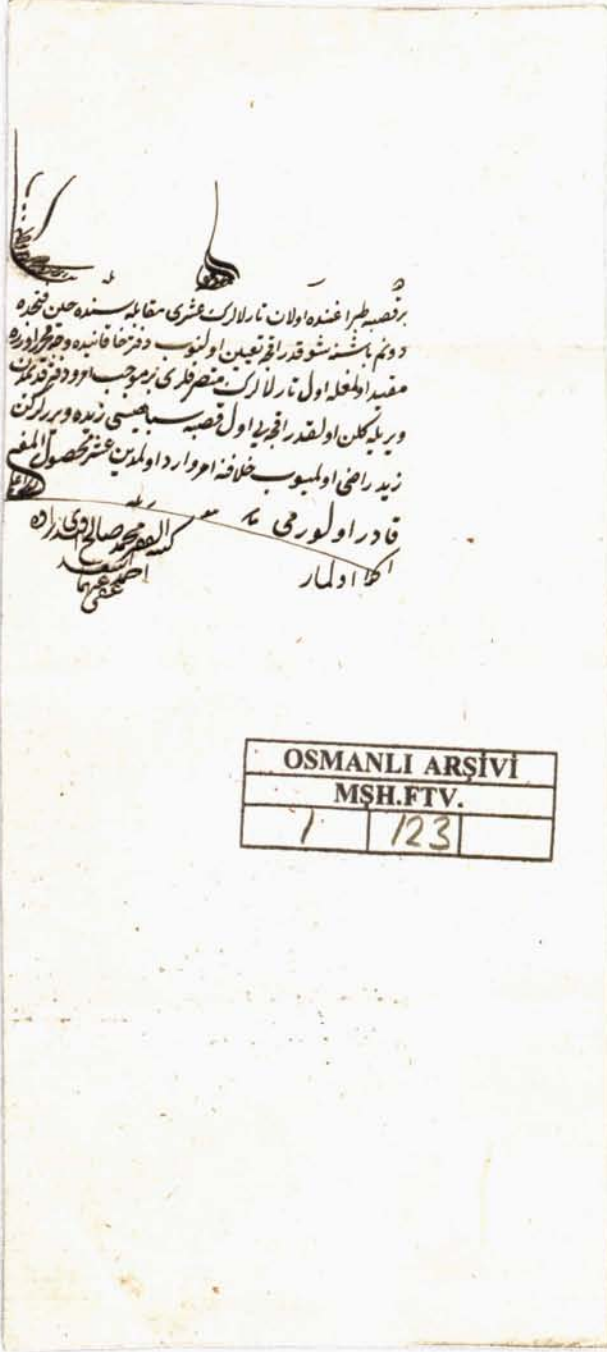 بر قصبه طپراغنده اولان تارلالرك عشری مقابله سنده حین فتحده
دونم باشنه شو قدر اقچه تعیین اولنوب دفتر خاقانیده وجه محرر اوزره
مقید اولمغله اول تارلالرك متصرفلری بر موجب امر و دفتر قدیمدن
ویریله كلن اولقدر اقچه یی اول قصبه سپاهیسی زیده ویررلركن
زید راضی اولمیوب خلافنه امر وارد اولمدین عشر محصول المغه
قادر اولور می
اولماز
كتبه الفقیر محمد صالح
احمد اسعد
عفی عنهما
OSMANLI ARŞİVİ
MŞH.FTV.
1 123